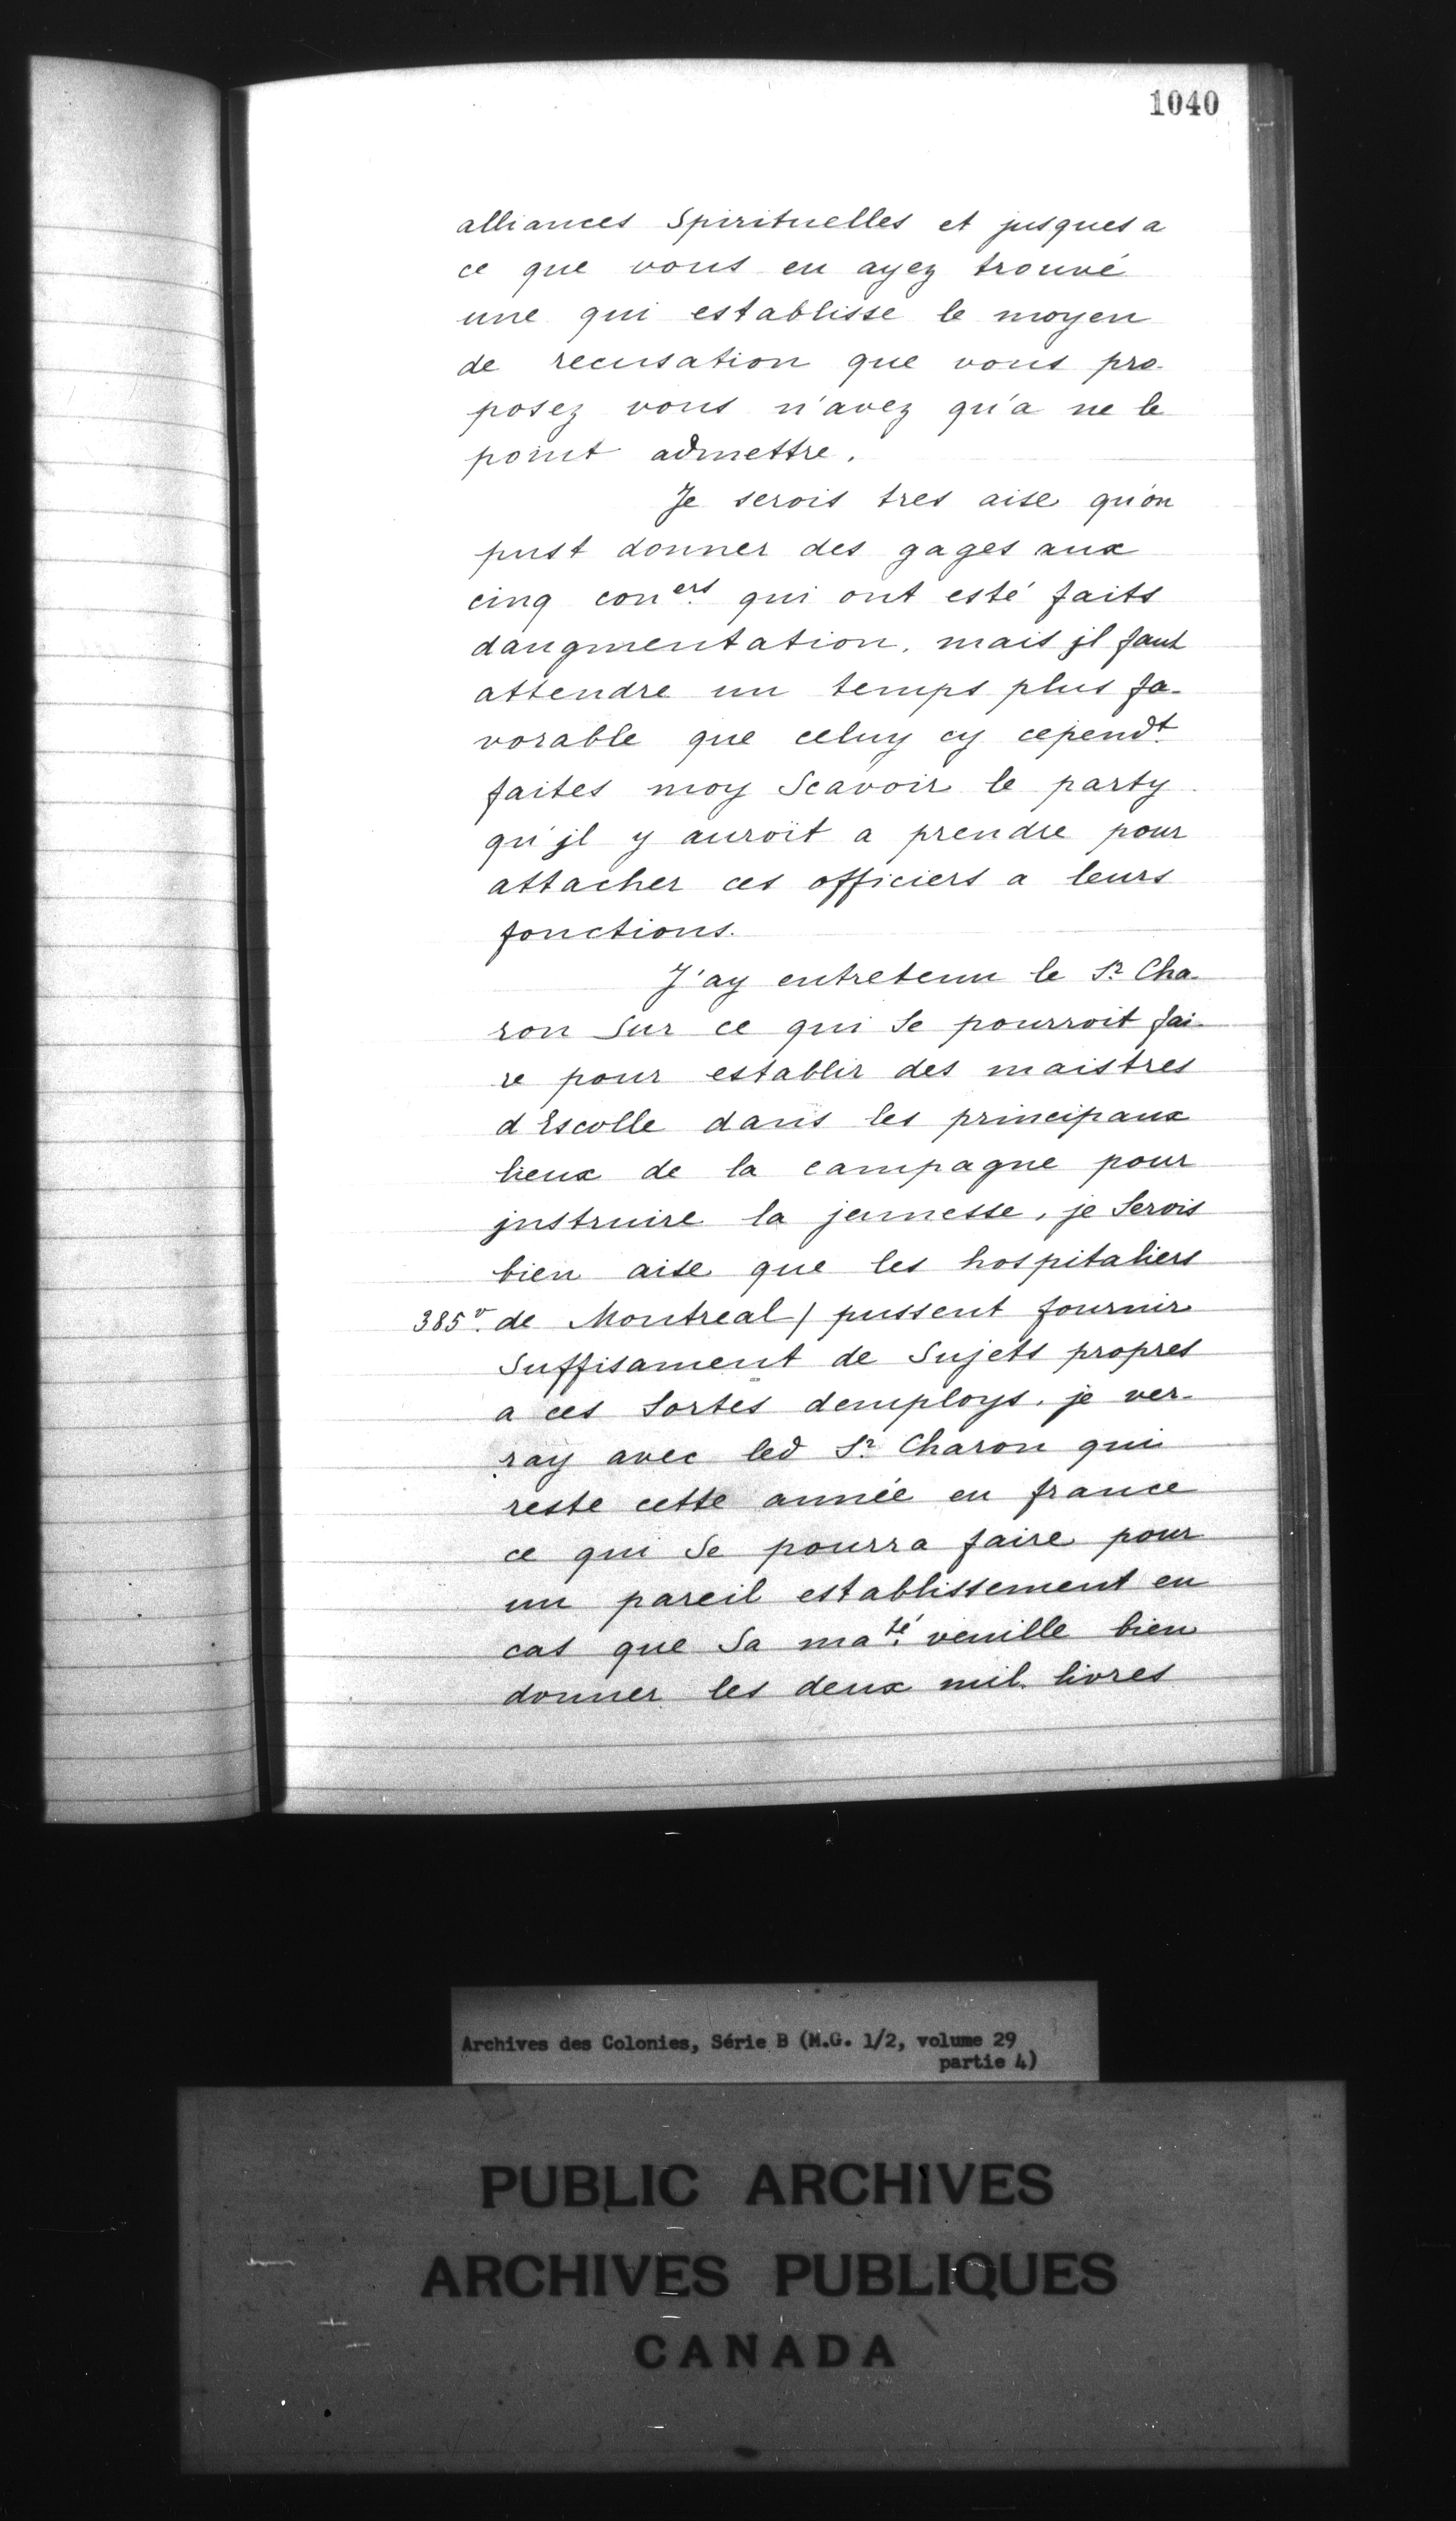 1040
alliances Spirituelles et jusques a
ce que vous en ayez trouvé
une qui establisse le moyen
de recusation que vous pro-
posez vous n'avez qu'a ne le
point admettre.
Je serois tres aise qu'on
pust donner des gages aux
cinq con.ers qui ont esté faits
daugmentation, mais jl faut
attendre un temps plus fa-
vorable que celuy cy cepend.t
faites moy Scavoir le party
qu'jl y auroit a prendre pour
attacher ces officiers a leurs
fonctions.
J'ay entretenu le Sr. Cha-
ron Sur ce qui Se pourroit fai-
re pour establir des maistres
d Escolle dans les principaux
lieux de la campagne pour
jnstruire la jeunesse, je Serois
bien aise que les hospitaliers
385v. de Montreal / pussent fournir
Suffisament de Sujets propres
a ces Sortes demploys, je ver-
ray avec led Sr. Charon qui
reste cette année en france
ce qui Se pourra faire pour
un pareil establissement en
cas que Sa ma.té veuille bien
donner les deux mil livres
Archives des Colonies, Série B (M.G. 1/2, volume 29
partie 4)
PUBLIC ARCHIVES
ARCHIVES PUBLIQUES
CANADA